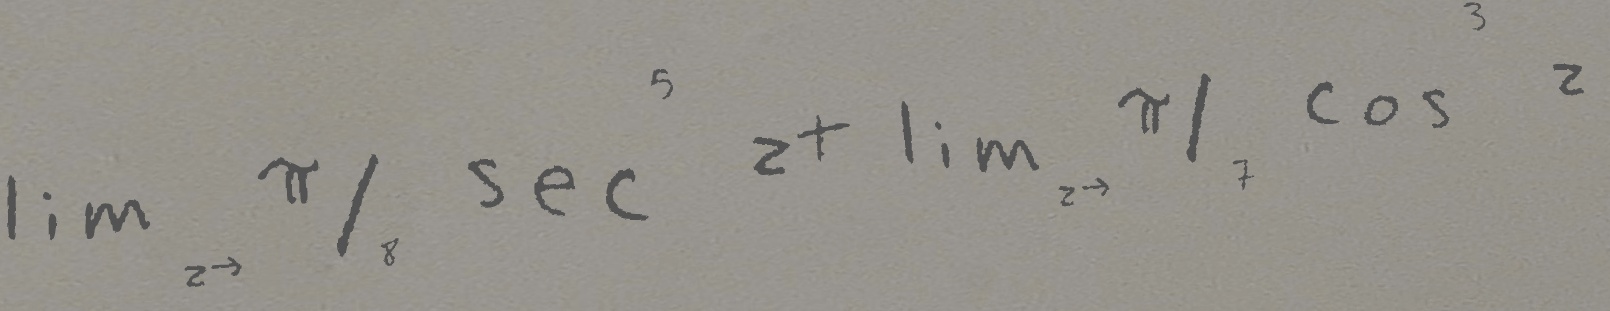 lim z→ π/8 sec^5 z + lim z→ π/7 cos^3 z